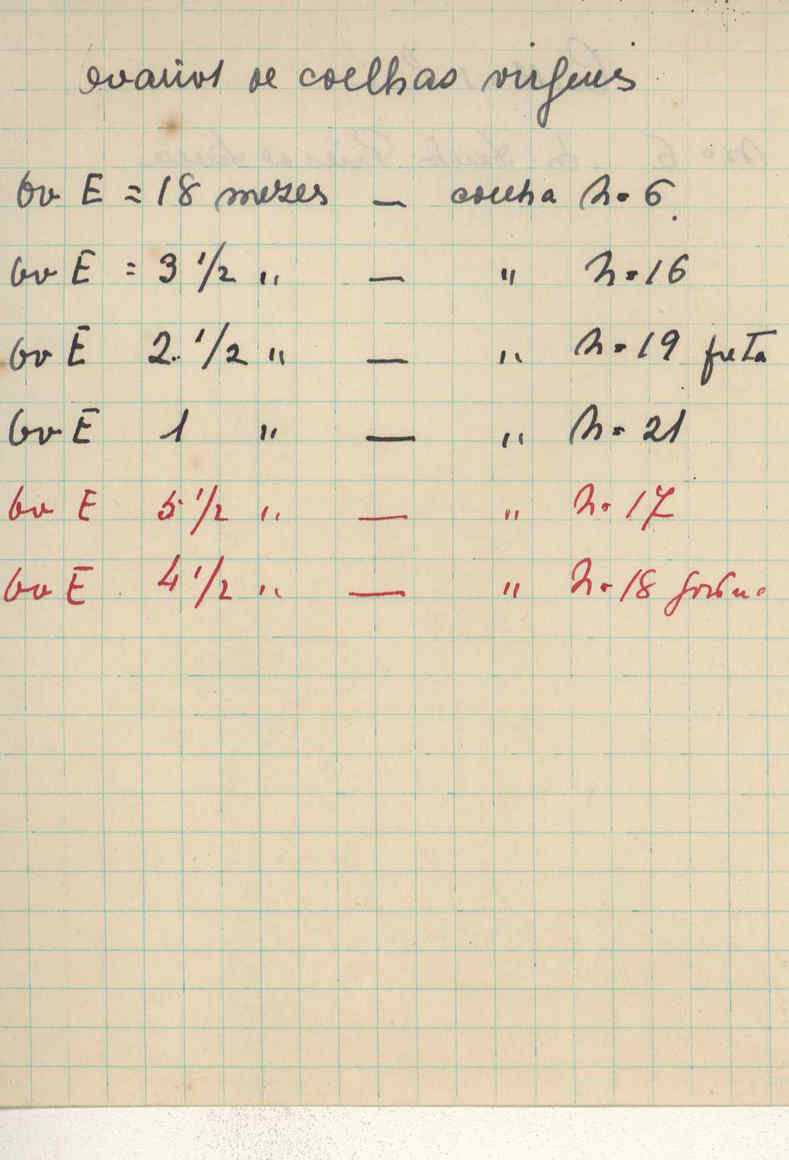 ovarios de coelhas virgens
ov E = 18 mezes — coelha n. 6
ov E = 3 1/2 " — " n. 16
ov E 2. 1/2 " — " n. 19 preta
ov E 1 " — " n. 21
ov E 5 1/2 " — " n. 17
ov E 4 1/2 " — " n. 18